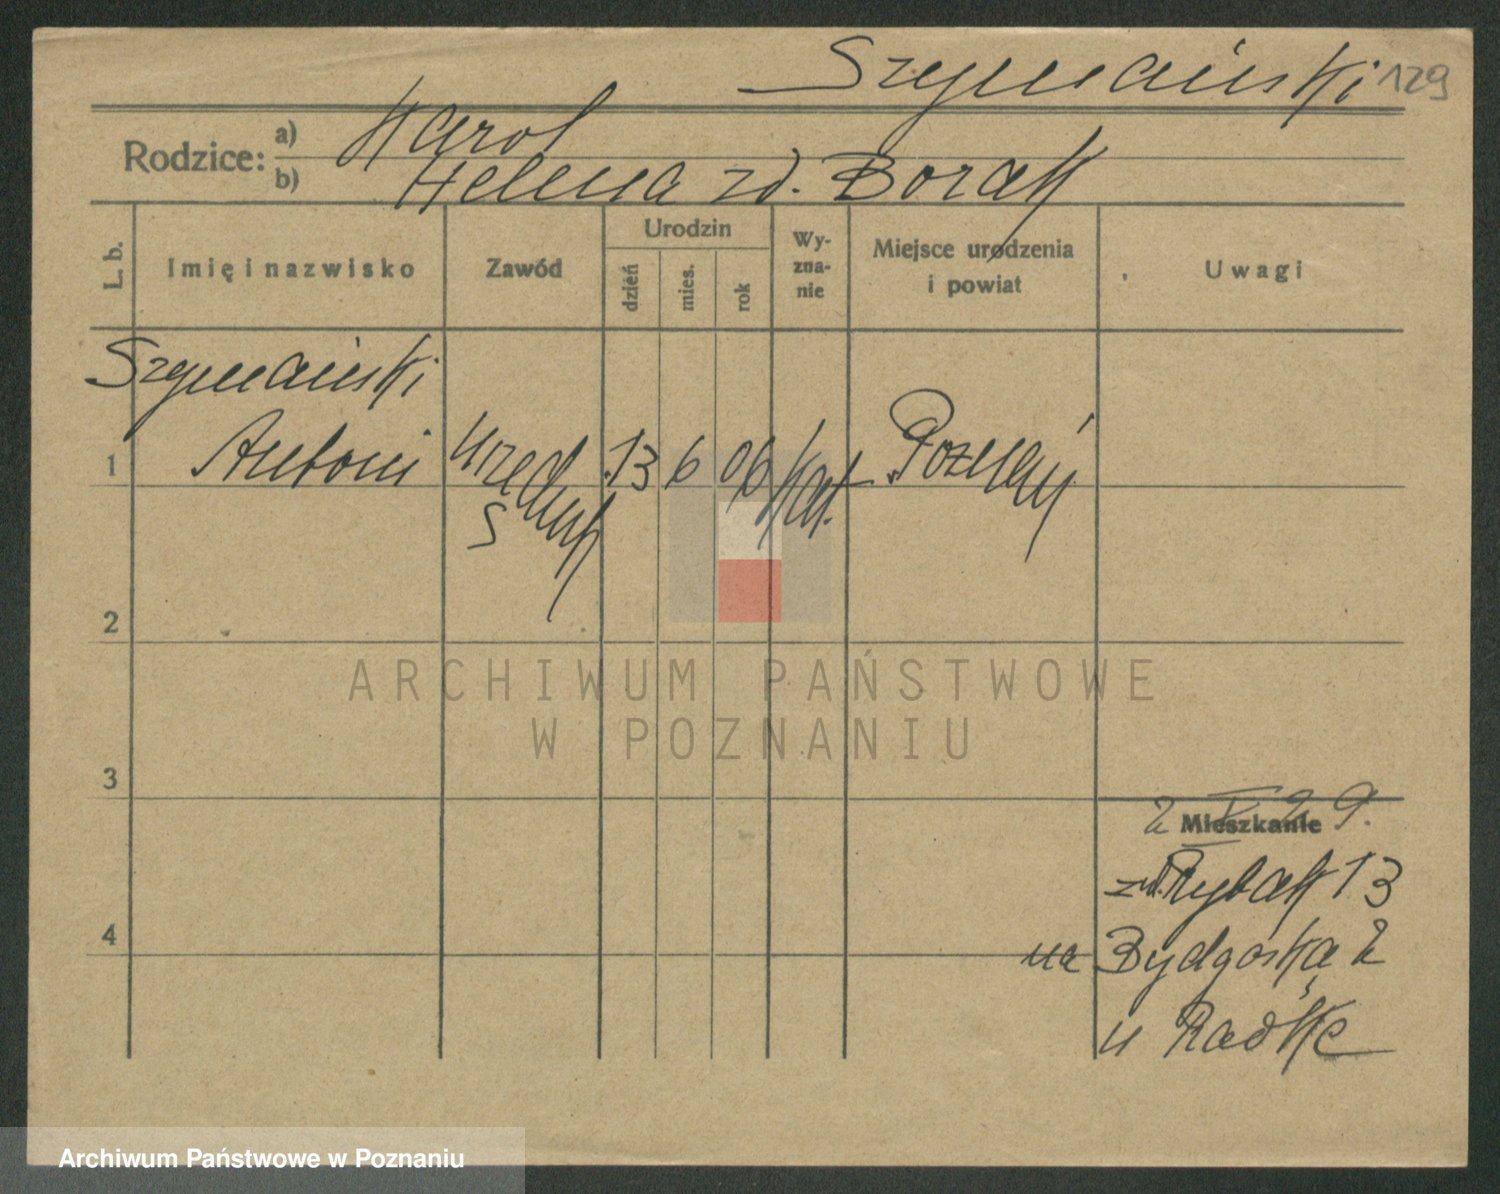 Szymański 129
Rodzice:
a) Karol
b) Helena zd. Borak
L. b.
Imię i nazwisko
Zawód
Urodzin
dzień
mies.
rok
Wy-
zna-
nie
Miejsce urodzenia
i powiat
Uwagi
Szymański
1 Antoni urzednik 13 6 06 kat. Poznań
s
2
3
4
2 V 29.
Mieszkanie
z ul. Rybak 13
na Bydgoską 2
u Radtke
ARCHIWUM PAŃSTWOWE
W POZNANIU
Archiwum Państwowe w Poznaniu